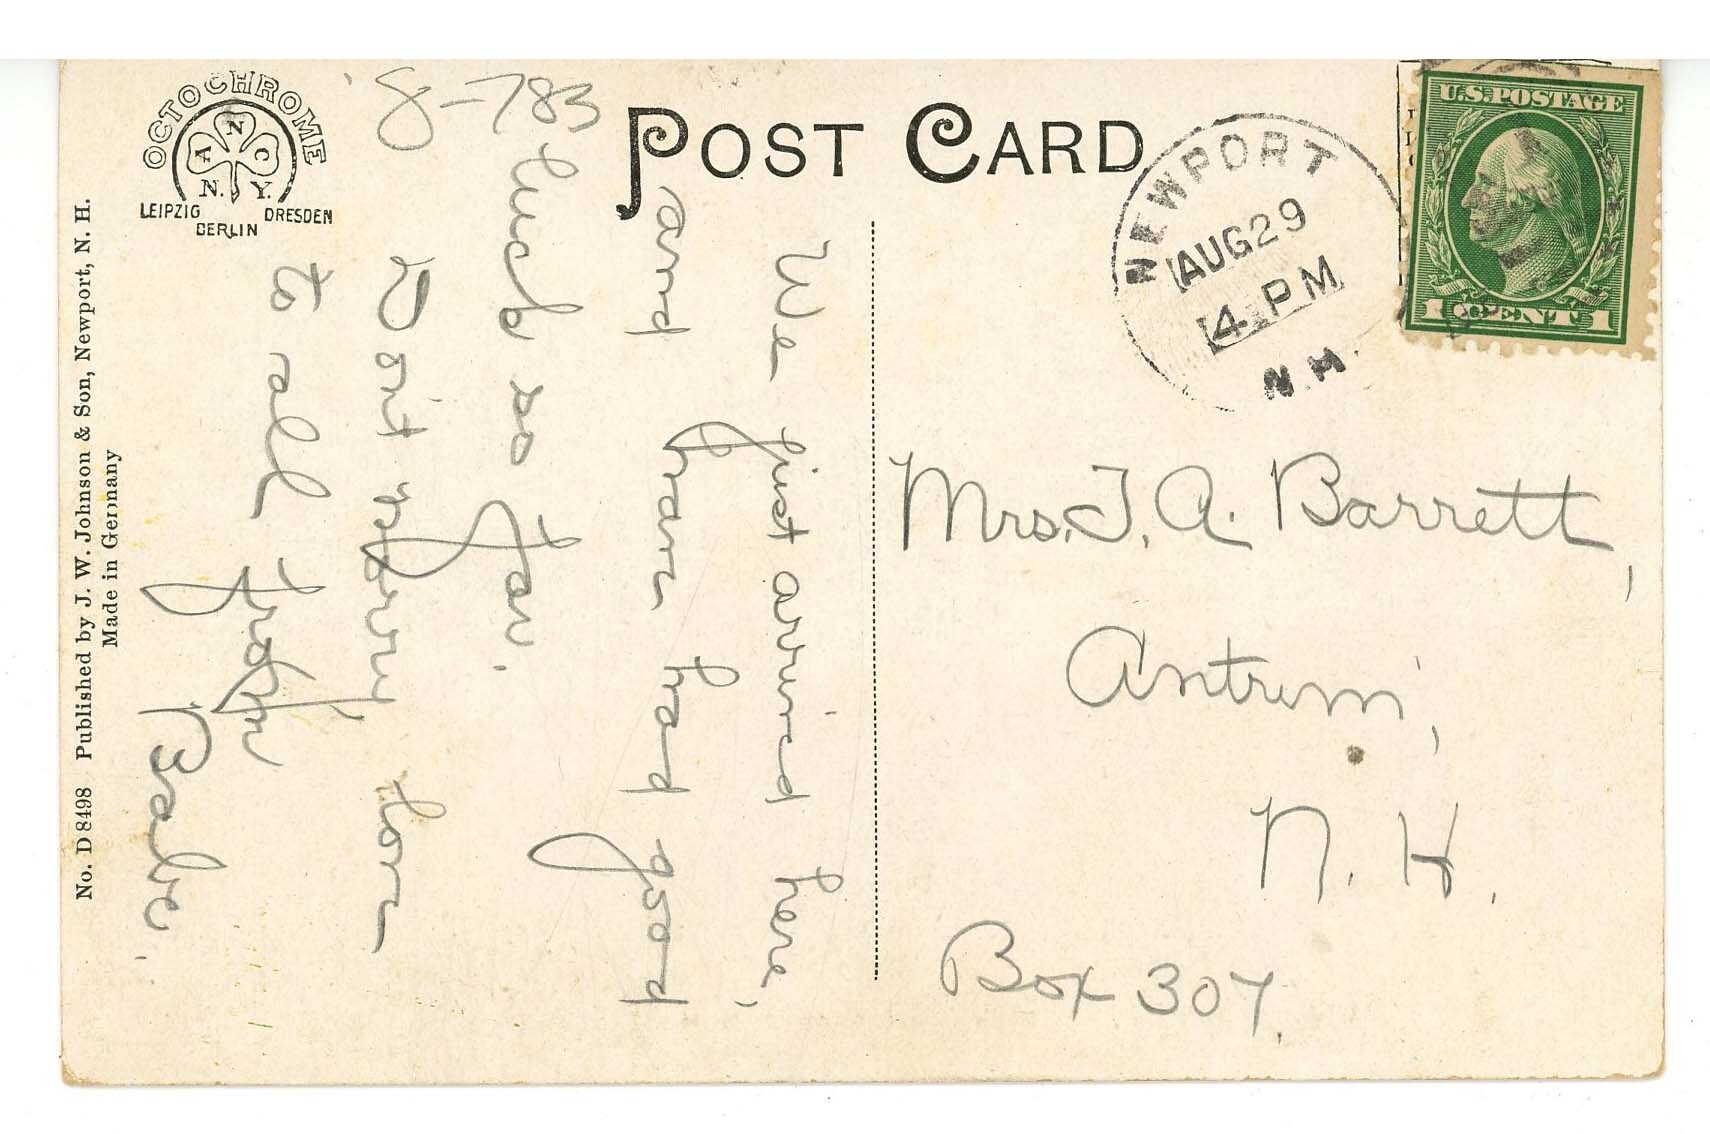 OCTOCHROME
A N C
N. Y.
LEIPZIG DRESDEN
BERLIN
8-783
POST CARD
NEWPORT
AUG 29
4 PM
N.H.
U.S. POSTAGE
1 CENT 1
We just arrived here,
and have had good
luck so far.
Don't worry, love
to all from
Babe.
Mrs. J. A. Barrett,
Antrim,
N. H.
Box 307.
No. D 8498 Published by J. W. Johnson & Son, Newport, N. H.
Made in Germany